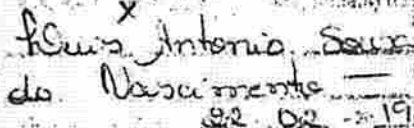 x
Luis Antonio Souz
do Nascimento —
22 02 - 19